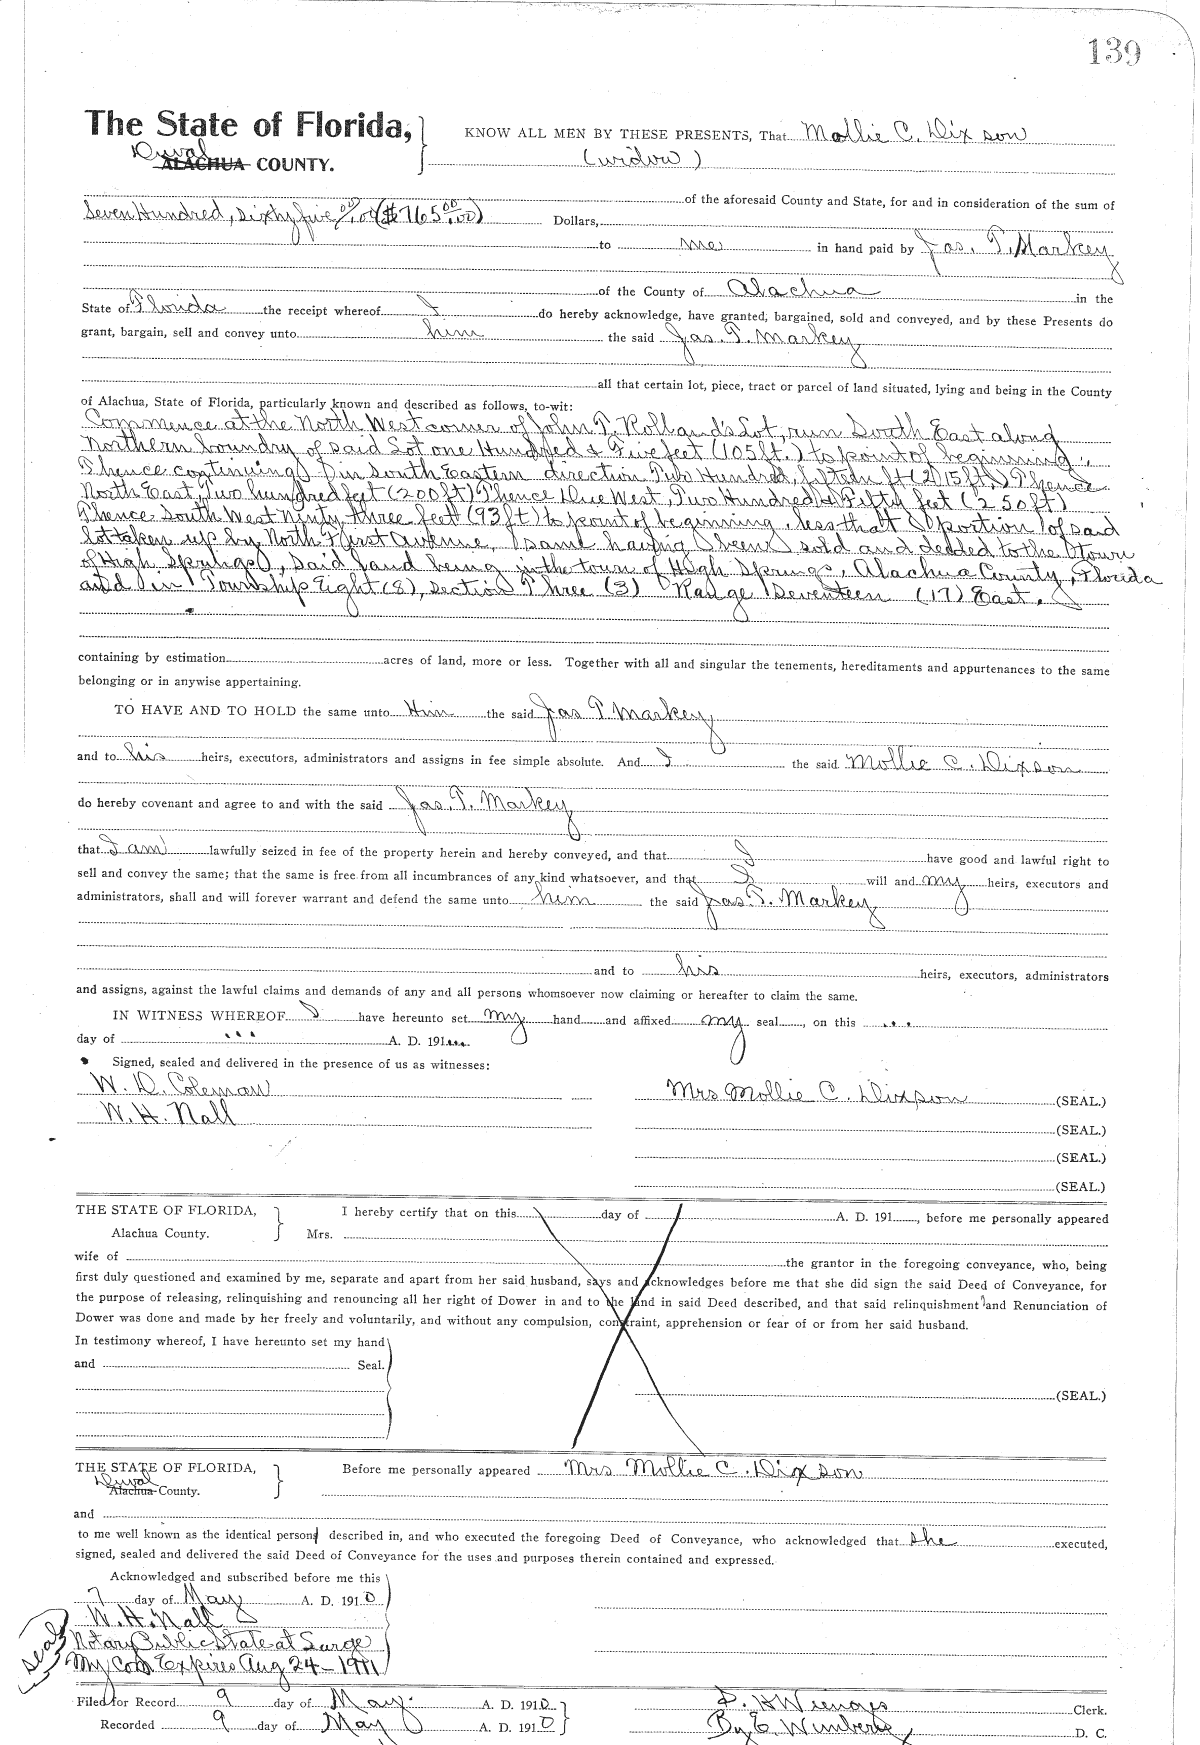 139
The State of Florida, KNOW ALL MEN BY THESE PRESENTS, That Mollie C. Dixson
Duval ALACHUA COUNTY. (widow)
of the aforesaid County and State, for and in consideration of the sum of
Seven Hundred, sixty five 00/100 ($765 00/100) Dollars,
to me in hand paid by Jas. T. Markey
of the County of Alachua in the
State of Florida the receipt whereof I do hereby acknowledge, have granted; bargained, sold and conveyed, and by these Presents do
grant, bargain, sell and convey unto him the said Jas. T. Markey
all that certain lot, piece, tract or parcel of land situated, lying and being in the County
of Alachua, State of Florida, particularly known and described as follows, to-wit:
Commence at the North West corner of John T. Rolland's Lot, run South East along
Northern boundry of said Lot one Hundred & Five feet (105 ft.) to point of beginning.
Thence continuing in South Eastern direction Two Hundred, fifteen ft (215 ft.) Thence
North East, Two hundred feet (200 ft) Thence Due West, Two Hundred & Fifty feet (250 ft)
Thence South West Ninty three feet (93 ft) to point of beginning, less that portion of said
lot taken up by North First Avenue, same having been sold and deeded to the Town
of High Springs, said land being in the town of High Springs, Alachua County, Florida
and in Township Eight (8), section Three (3) Range Seventeen (17) East.
containing by estimation acres of land, more or less. Together with all and singular the tenements, hereditaments and appurtenances to the same
belonging or in anywise appertaining.
TO HAVE AND TO HOLD the same unto Him the said Jas T. Markey
and to his heirs, executors, administrators and assigns in fee simple absolute. And I the said Mollie C. Dixson
do hereby covenant and agree to and with the said Jas. T. Markey
that I am lawfully seized in fee of the property herein and hereby conveyed, and that I have good and lawful right to
sell and convey the same; that the same is free from all incumbrances of any kind whatsoever, and that I will and my heirs, executors and
administrators, shall and will forever warrant and defend the same unto him the said Jas. T. Markey
and to his heirs, executors, administrators
and assigns, against the lawful claims and demands of any and all persons whomsoever now claiming or hereafter to claim the same.
IN WITNESS WHEREOF I have hereunto set my hand and affixed my seal, on this ...
day of ... A. D. 191...
Signed, sealed and delivered in the presence of us as witnesses:
W. D. Coleman Mrs Mollie C. Dixson (SEAL.)
W. H. Nall (SEAL.)
(SEAL.)
(SEAL.)
THE STATE OF FLORIDA, I hereby certify that on this day of A. D. 191, before me personally appeared
Alachua County. Mrs.
wife of the grantor in the foregoing conveyance, who, being
first duly questioned and examined by me, separate and apart from her said husband, says and acknowledges before me that she did sign the said Deed of Conveyance, for
the purpose of releasing, relinquishing and renouncing all her right of Dower in and to the land in said Deed described, and that said relinquishment and Renunciation of
Dower was done and made by her freely and voluntarily, and without any compulsion, constraint, apprehension or fear of or from her said husband.
In testimony whereof, I have hereunto set my hand
and Seal.
(SEAL.)
THE STATE OF FLORIDA, Before me personally appeared Mrs Mollie C. Dixson
Duval Alachua County.
and
to me well known as the identical person described in, and who executed the foregoing Deed of Conveyance, who acknowledged that she executed,
signed, sealed and delivered the said Deed of Conveyance for the uses and purposes therein contained and expressed.
Acknowledged and subscribed before me this
7 day of May A. D. 1910
W. H. Nall
seal Notary Public State at Large
My Com Expires Aug 24-1911
Filed for Record 9 day of May A. D. 1910 Clerk.
Recorded 9 day of May A. D. 1910 By E. Wimberly D. C.